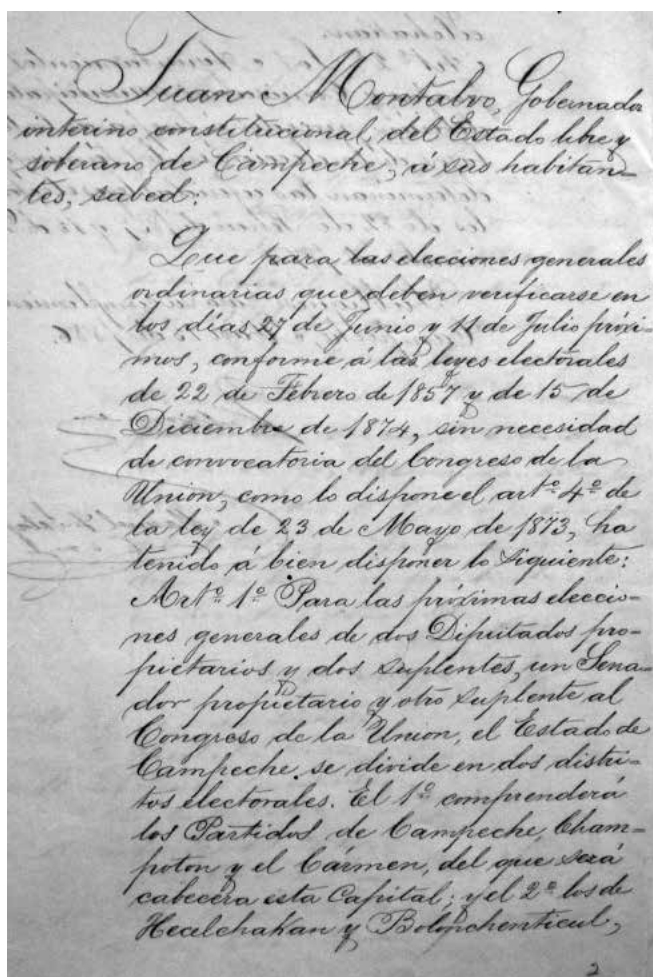 Juan Montalvo, Gobernador
interino constitucional del Estado libre y
soberano de Campeche, á sus habitan-
tes, sabed:
Que para las elecciones generales
ordinarias que deben verificarse en
los días 27 de Junio y 11 de Julio próxi-
mos, conforme á las leyes electorales
de 22 de Febrero de 1857 y de 15 de
Diciembre de 1874, sin necesidad
de convocatoria del Congreso de la
Union, como lo dispone el artº 4º de
la ley de 23 de Mayo de 1873, ha
tenido á bien disponer lo siguiente:
Artº 1º Para las próximas eleccio-
nes generales de dos Diputados pro-
pietarios y dos suplentes, un Sena-
dor propietario y otro suplente al
Congreso de la Union, el Estado de
Campeche se divide en dos distri-
tos electorales. El 1º comprenderá
los Partidos de Campeche, Cham-
poton y el Cármen, del que será
cabecera esta Capital; y el 2º los de
Hecelchakan y Bolonchenticul,
2